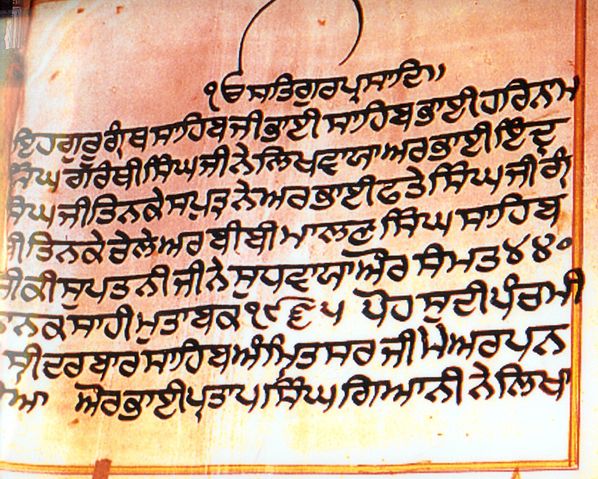 ੴ ਸਤਿਗੁਰਪ੍ਰਸਾਦਿ॥
ਇਹਗੁਰੂਗ੍ਰੰਥਸਾਹਿਬਜੀਭਾਈਸਾਹਿਬਭਾਈਹਰਿਨਾਮ
ਸਿੰਘਗਰੰਥੀਸਿੰਘਜੀਨੇਲਿਖਵਾਯਾਅਰਭਾਈਇੰਦ੍ਰ
ਸਿੰਘਜੀਤਿਨਕੇਸਪੁਤ੍ਰਨੇਅਰਭਾਈਫਤੇਸਿੰਘਜੀਗ੍ਰੰ
ਜੀਤਿਨਕੇਚੇਲੇਅਰਬੀਬੀਮਾਲਣ ਸਿੰਘਸਾਹਿਬ
ਜੀਕੀਸੁਪਤਨੀਜੀਨੇਸੁਧਵਾਯਾਔਰਸੰਮਤ੪੪੦
ਨਨਕਸਾਹੀਮੁਤਾਬਕ੧੯੬੫ ਪੋਹਸੁਦੀਪੰਚਮੀ
ਸ੍ਰੀਦਰਬਾਰਸਾਹਿਬਅੰਮ੍ਰਿਤਸਰਜੀਮੇਅਰਪਨ
ਔਰਭਾਈਪ੍ਰਤਾਪਸਿੰਘਗਿਆਨੀਨੇਲਿਖਾ